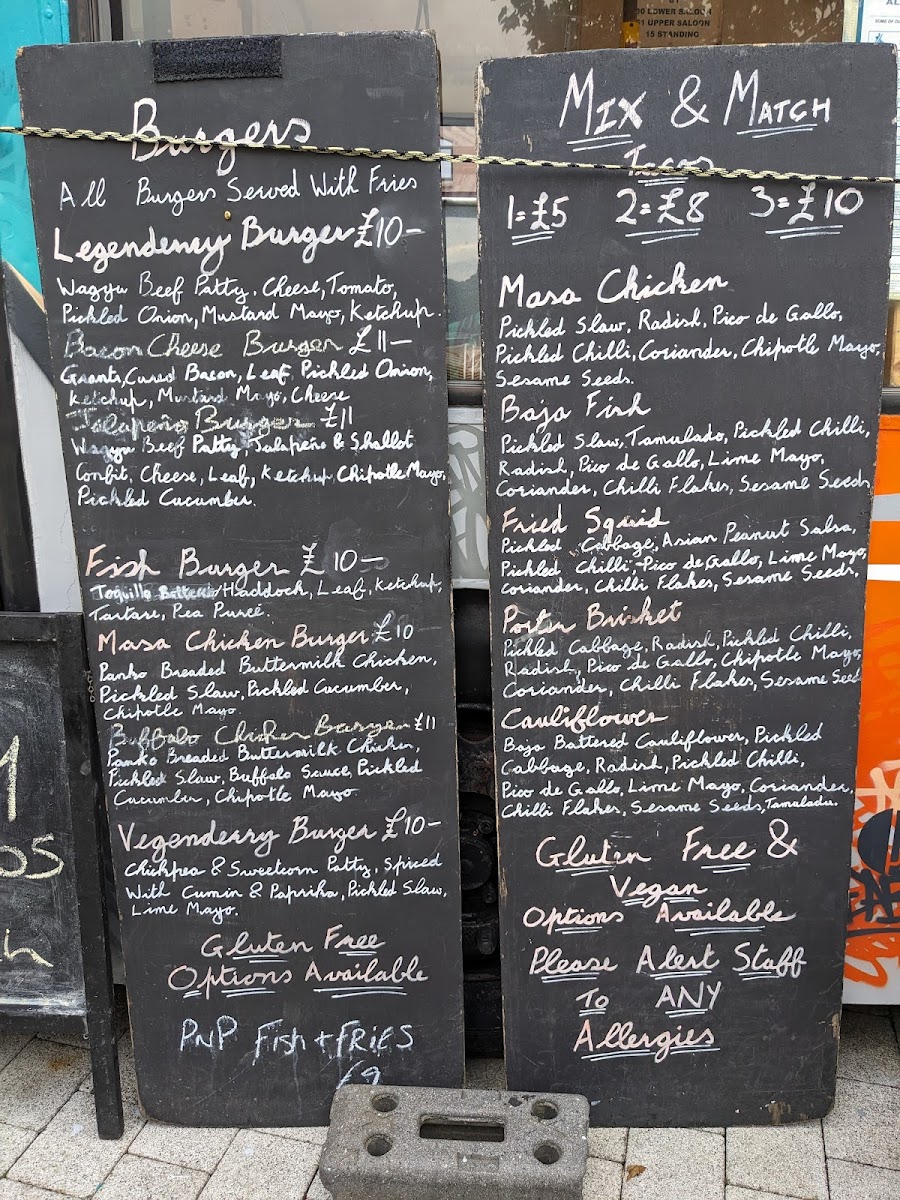 30 LOWER SALOON
51 UPPER SALOON
15 STANDING
Burgers
All Burgers Served With Fries
Legendenry Burger £10-
Wagyu Beef Patty, Cheese, Tomato,
Pickled Onion, Mustard Mayo, Ketchup.
Bacon Cheese Burger £11-
Grants, Cured Bacon, Leaf, Pickled Onion,
Ketchup, Mustard Mayo, Cheese
Jalapeño Burger £11
Wagyu Beef Patty, Jalapeño & Shallot
Confit, Cheese, Leaf, Ketchup, Chipotle Mayo,
Pickled Cucumber.
Fish Burger £10-
Haddock, Leaf, Ketchup,
Tartare, Pea Pureé.
Masa Chicken Burger £10
Panko Breaded Buttermilk Chicken,
Pickled Slaw, Pickled Cucumber,
Chipotle Mayo.
Buffalo Chicken Burger £11
Panko Breaded Buttermilk Chicken,
Pickled Slaw, Buffalo Sauce, Pickled
Cucumber, Chipotle Mayo
Vegendenry Burger £10-
Chickpea & Sweetcorn Patty, Spiced
With Cumin & Paprika, Pickled Slaw,
Lime Mayo.
Gluten Free
Options Available
PNP Fish + FRIES
£9
Mix & Match
Tacos
1=£5 2=£8 3=£10
Masa Chicken
Pickled Slaw, Radish, Pico de Gallo,
Pickled Chilli, Coriander, Chipotle Mayo,
Sesame Seeds.
Baja Fish
Pickled Slaw, Tamulado, Pickled Chilli,
Radish, Pico de Gallo, Lime Mayo,
Coriander, Chilli Flakes, Sesame Seeds
Fried Squid
Pickled Cabbage, Asian Peanut Salsa,
Pickled Chilli, Pico de Gallo, Lime Mayo,
Coriander, Chilli Flakes, Sesame Seeds,
Porter Brisket
Pickled Cabbage, Radish, Pickled Chilli,
Radish, Pico de Gallo, Chipotle Mayo,
Coriander, Chilli Flakes, Sesame Seed
Cauliflower
Baja Battered Cauliflower, Pickled
Cabbage, Radish, Pickled Chilli,
Pico de Gallo, Lime Mayo, Coriander,
Chilli Flakes, Sesame Seeds, Tamaladu.
Gluten Free &
Vegan
Options Available
Please Alert Staff
To ANY
Allergies